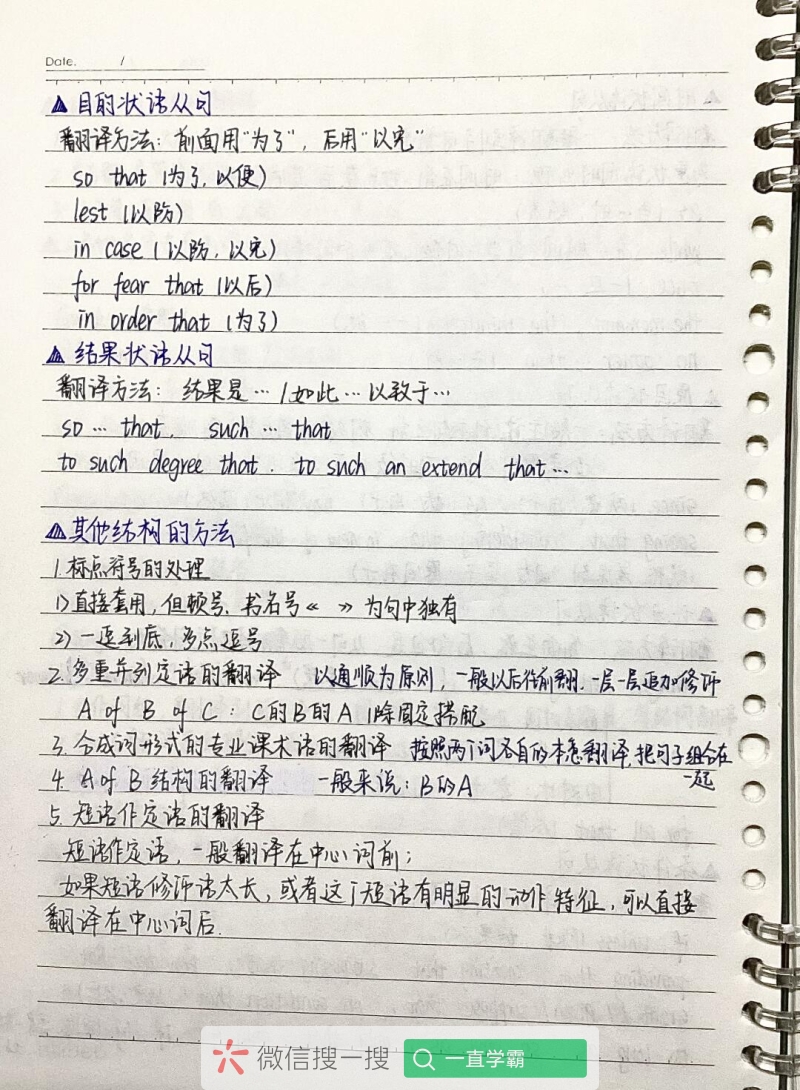 Date. /
▲ 目的状语从句
翻译方法：前面用“为了”，后用“以免”
so that (为了，以便)
lest (以防)
in case (以防，以免)
for fear that (以后)
in order that (为了)
▲ 结果状语从句
翻译方法：结果是… /如此…以致于…
so … that . such … that
to such degree that . to such an extend that …
▲其他结构的方法
1. 标点符号的处理
1) 直接套用，但顿号、书名号《 》为句中独有
2) 一逗到底，多点逗号
2. 多重并列定语的翻译 以通顺为原则，一般以后往前翻，一层一层追加修饰
A of B of C : C的B的A | 除固定搭配
3. 合成词形式的专业课术语的翻译 按照两个词各自的本意翻译，把句子组合在一起
4. A of B 结构的翻译 一般来说：B的A
5. 短语作定语的翻译
短语作定语，一般翻译在中心词前；
如果短语修饰语太长，或者这个短语有明显的动作特征，可以直接
翻译在中心词后.
微信搜一搜 一直学霸